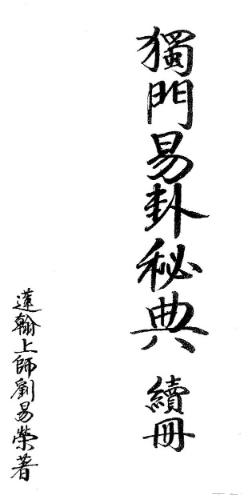 獨門易卦秘典 續冊
蓮翰上師劉易榮著